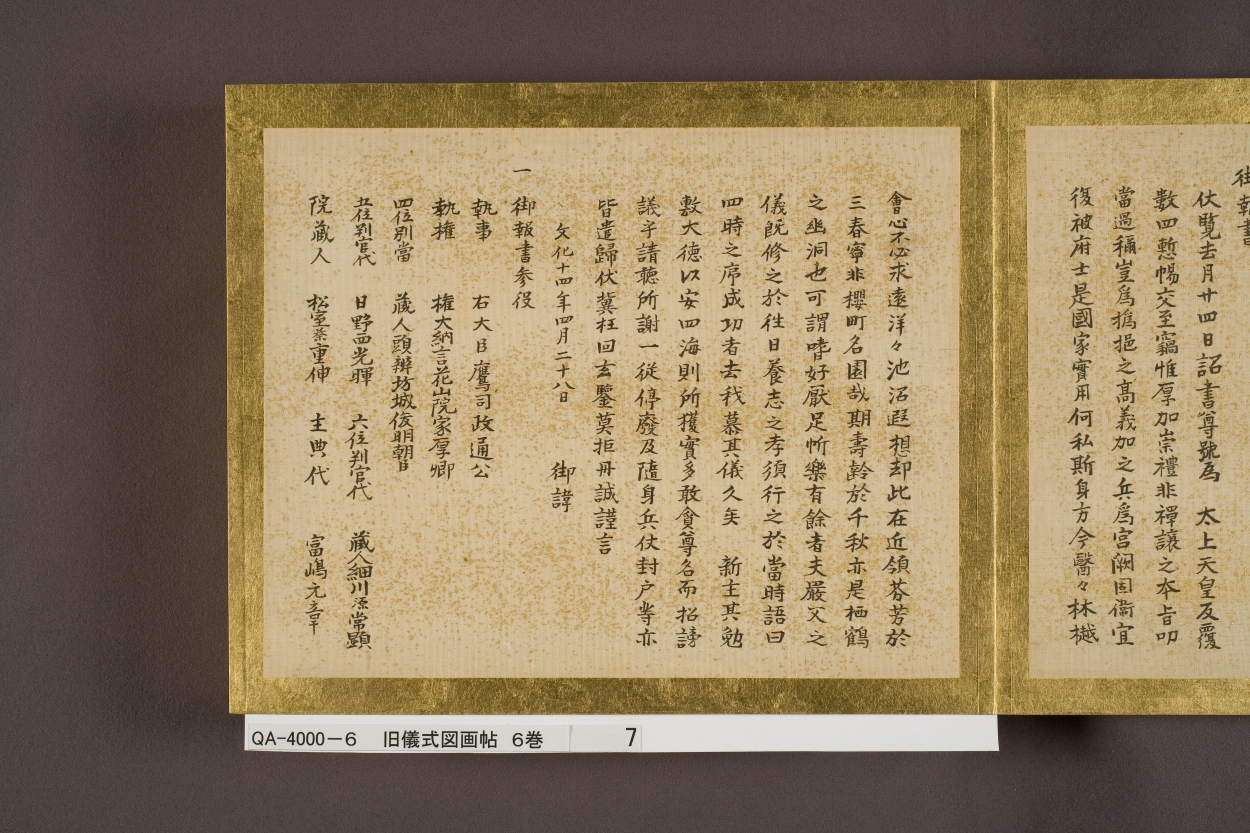 御報書
伏覧去月廿四日詔書尊號為　太上天皇反覆
數四慙惕交至竊惟厚加崇禮非禪讓之本旨叨
當過稱豈為撝挹之高義加之兵為宮闕固衞宜
復被府士是國家實用何私斯身方今翳々林樾
會心不必求遠洋々池沼遐想却此在近領芬芳於
三春寧非櫻町名園哉期壽齡於千秋亦是栖鶴
之幽洞也可謂嗜好厭足忻樂有餘者夫嚴父之
儀既修之於往日養志之孝須行之於當時語曰
四時之序成功者去我慕其儀久矣　新主其勉
敷大德以安四海則所獲實多敢貪尊名而招謗
議乎請聽所謝一從停廢及隨身兵仗封戸等亦
皆遣歸伏冀枉回玄鑒莫拒丹誠謹言
文化十四年四月二十八日　御諱
一　御報書参役
執事　右大臣鷹司政通公
執権　權大納言花山院家厚卿
四位別當　藏人頭辨坊城俊明朝臣
五位判官代　日野西光暉　六位判官代　藏人細川源常顕
院藏人　松室秦重伸　主典代　富嶋元章
QA-4000-6　旧儀式図画帖　6巻　7